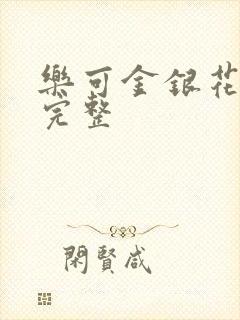 樂可金銀花
完整
閑賢咸